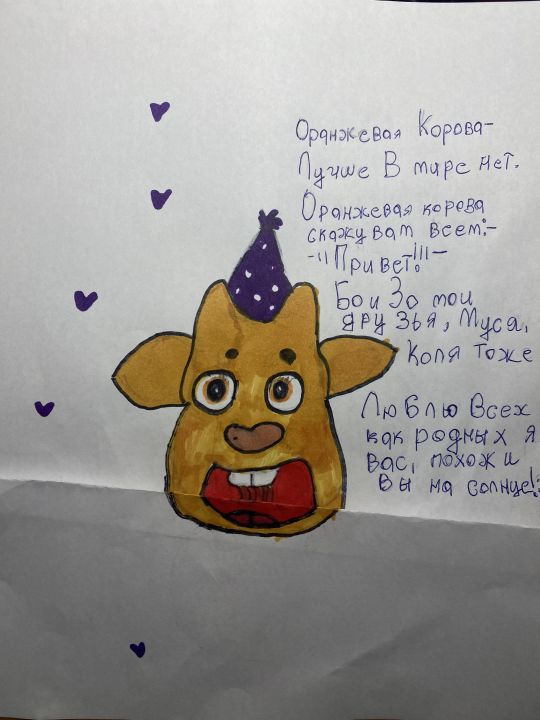 Оранжевая Корова-
Лучше В мире нет.
Оранжевая корова
скажу вам всем:-
-"Привет!!!-
Бо и Зо мои
друзья, Муся,
Коля тоже
Люблю Всех
как родных я
вас, похожи
вы на солнце!